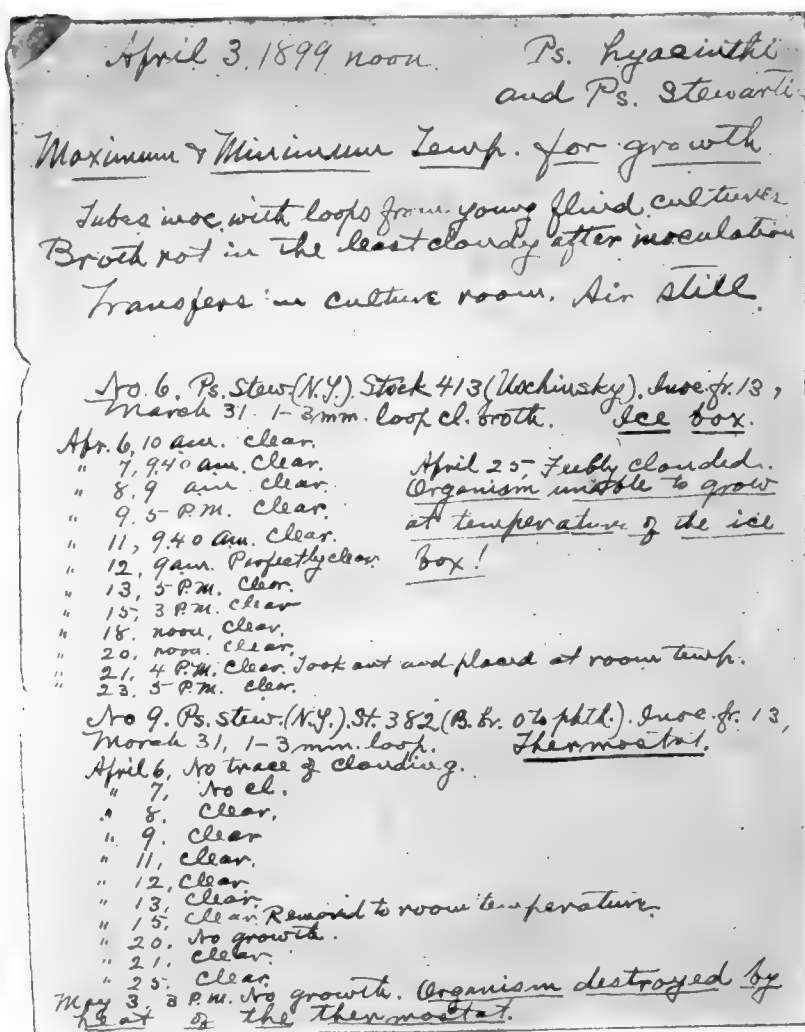 April 3, 1899 noon. Ps. hyacinthi
and Ps. Stewarti
Maximum & Minimum Temp. for growth
Tubes inoc. with loops from young fluid cultures
Broth not in the least cloudy after inoculation
Transfers in culture room. Air still.
No. 6. Ps. Stew. (N.Y.) Stock 413 (Uschinsky). Inoc. fr. 13,
March 31. 1-3 mm. loop cl. broth. Ice box.
Apr. 6, 10 am. clear.
" 7, 940 am. Clear.
" 8, 9 am clear.
" 9. 5 P.M. Clear.
" 11, 9.40 am. Clear.
" 12, 9 am. Perfectly clear
" 13, 5 P.M. Clear.
" 15, 3 P.M. Clear
" 18. noon, Clear.
" 20, noon. Clear.
" 21, 4 P.M. Clear. Took out and placed at room temp.
" 23, 5 P.M. Clear.
April 25, Feebly clouded.
Organism unable to grow
at temperature of the ice
box!
No 9. Ps. Stew. (N.Y.). St. 382 (B. br. 0 to phth.). Inoc. fr. 13,
March 31, 1-3 mm. loop. Thermostat.
April 6, No trace of clouding.
" 7, No cl.
" 8, Clear.
" 9. Clear
" 11, Clear.
" 12, Clear
" 13, Clear.
" 15, Clear. Removed to room temperature.
" 20. No growth.
" 21, Clear.
" 25. Clear
May 3, 3 P.M. No growth. Organism destroyed by
heat of the thermostat.